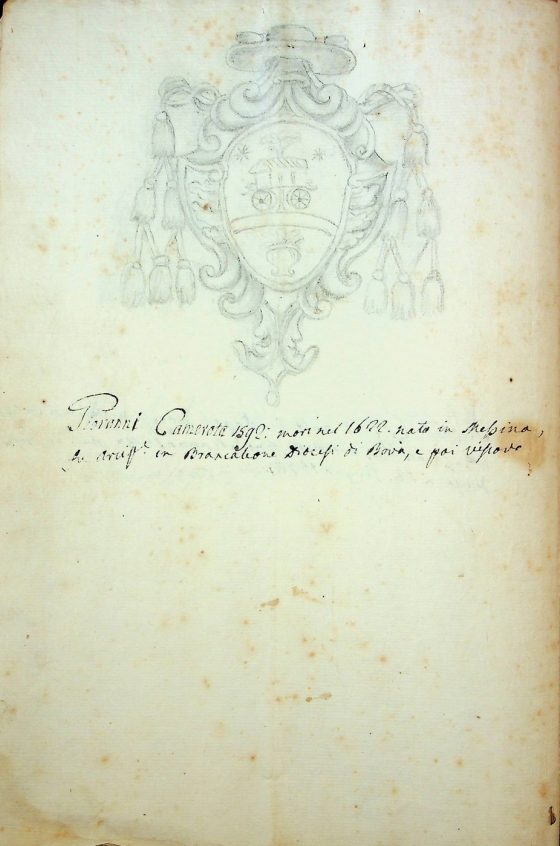 Giovanni Camerota 1592: morì nel 1622. nato in Messina,
fu Arcip.e in Brancalione Diocesi di Bova, e poi vescovo